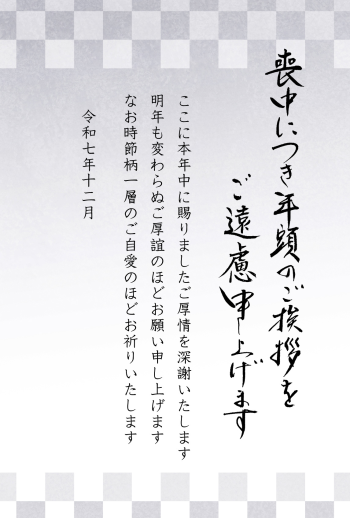 喪中につき年頭のご挨拶を
ご遠慮申し上げます
ここに本年中に賜りましたご厚情を深謝いたします
明年も変わらぬご厚誼のほどお願い申し上げます
なお時節柄一層のご自愛のほどお祈りいたします
令和七年十二月